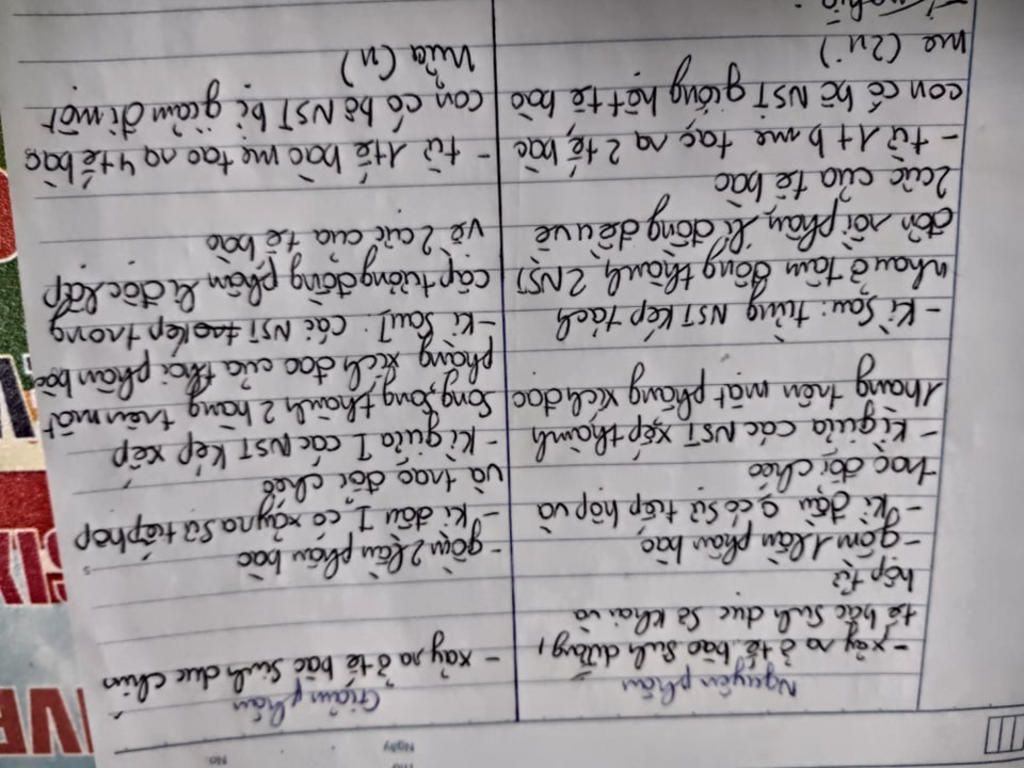 No.
Thứ
Ngày
Nguyên phân
- xảy ra ở tế bào sinh dưỡng,
tế bào sinh dục sơ khai và
hợp tử
- gồm 1 lần phân bào
- kì đầu có sự tiếp hợp và
trao đổi chéo
- kì giữa các NST xếp thành
1 hàng trên mặt phẳng xích đạo
- Kì sau: từng NST kép tách
nhau ở tâm động thành 2 NST
đơn rồi phân li đồng đều về
2 cực của tế bào
- từ 1 tb mẹ tạo ra 2 tế bào
con có bộ NST giống hệt tế bào
mẹ (2n)
Giảm phân
- xảy ra ở tế bào sinh dục chín
- gồm 2 lần phân bào
- kì đầu I có xảy ra sự tiếp hợp
và trao đổi chéo
- kì giữa I các NST kép xếp
song song thành 2 hàng trên mặt
phẳng xích đạo của thoi phân bào
- kì sau I: các NST kép trong
cặp tương đồng phân li độc lập
về 2 cực của tế bào
- từ 1 tế bào mẹ tạo ra 4 tế bào
con có bộ NST bị giảm đi một
nửa (n)